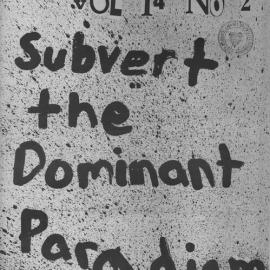 VOL 14 No 2
Subvert
the
Dominant
Paradigm